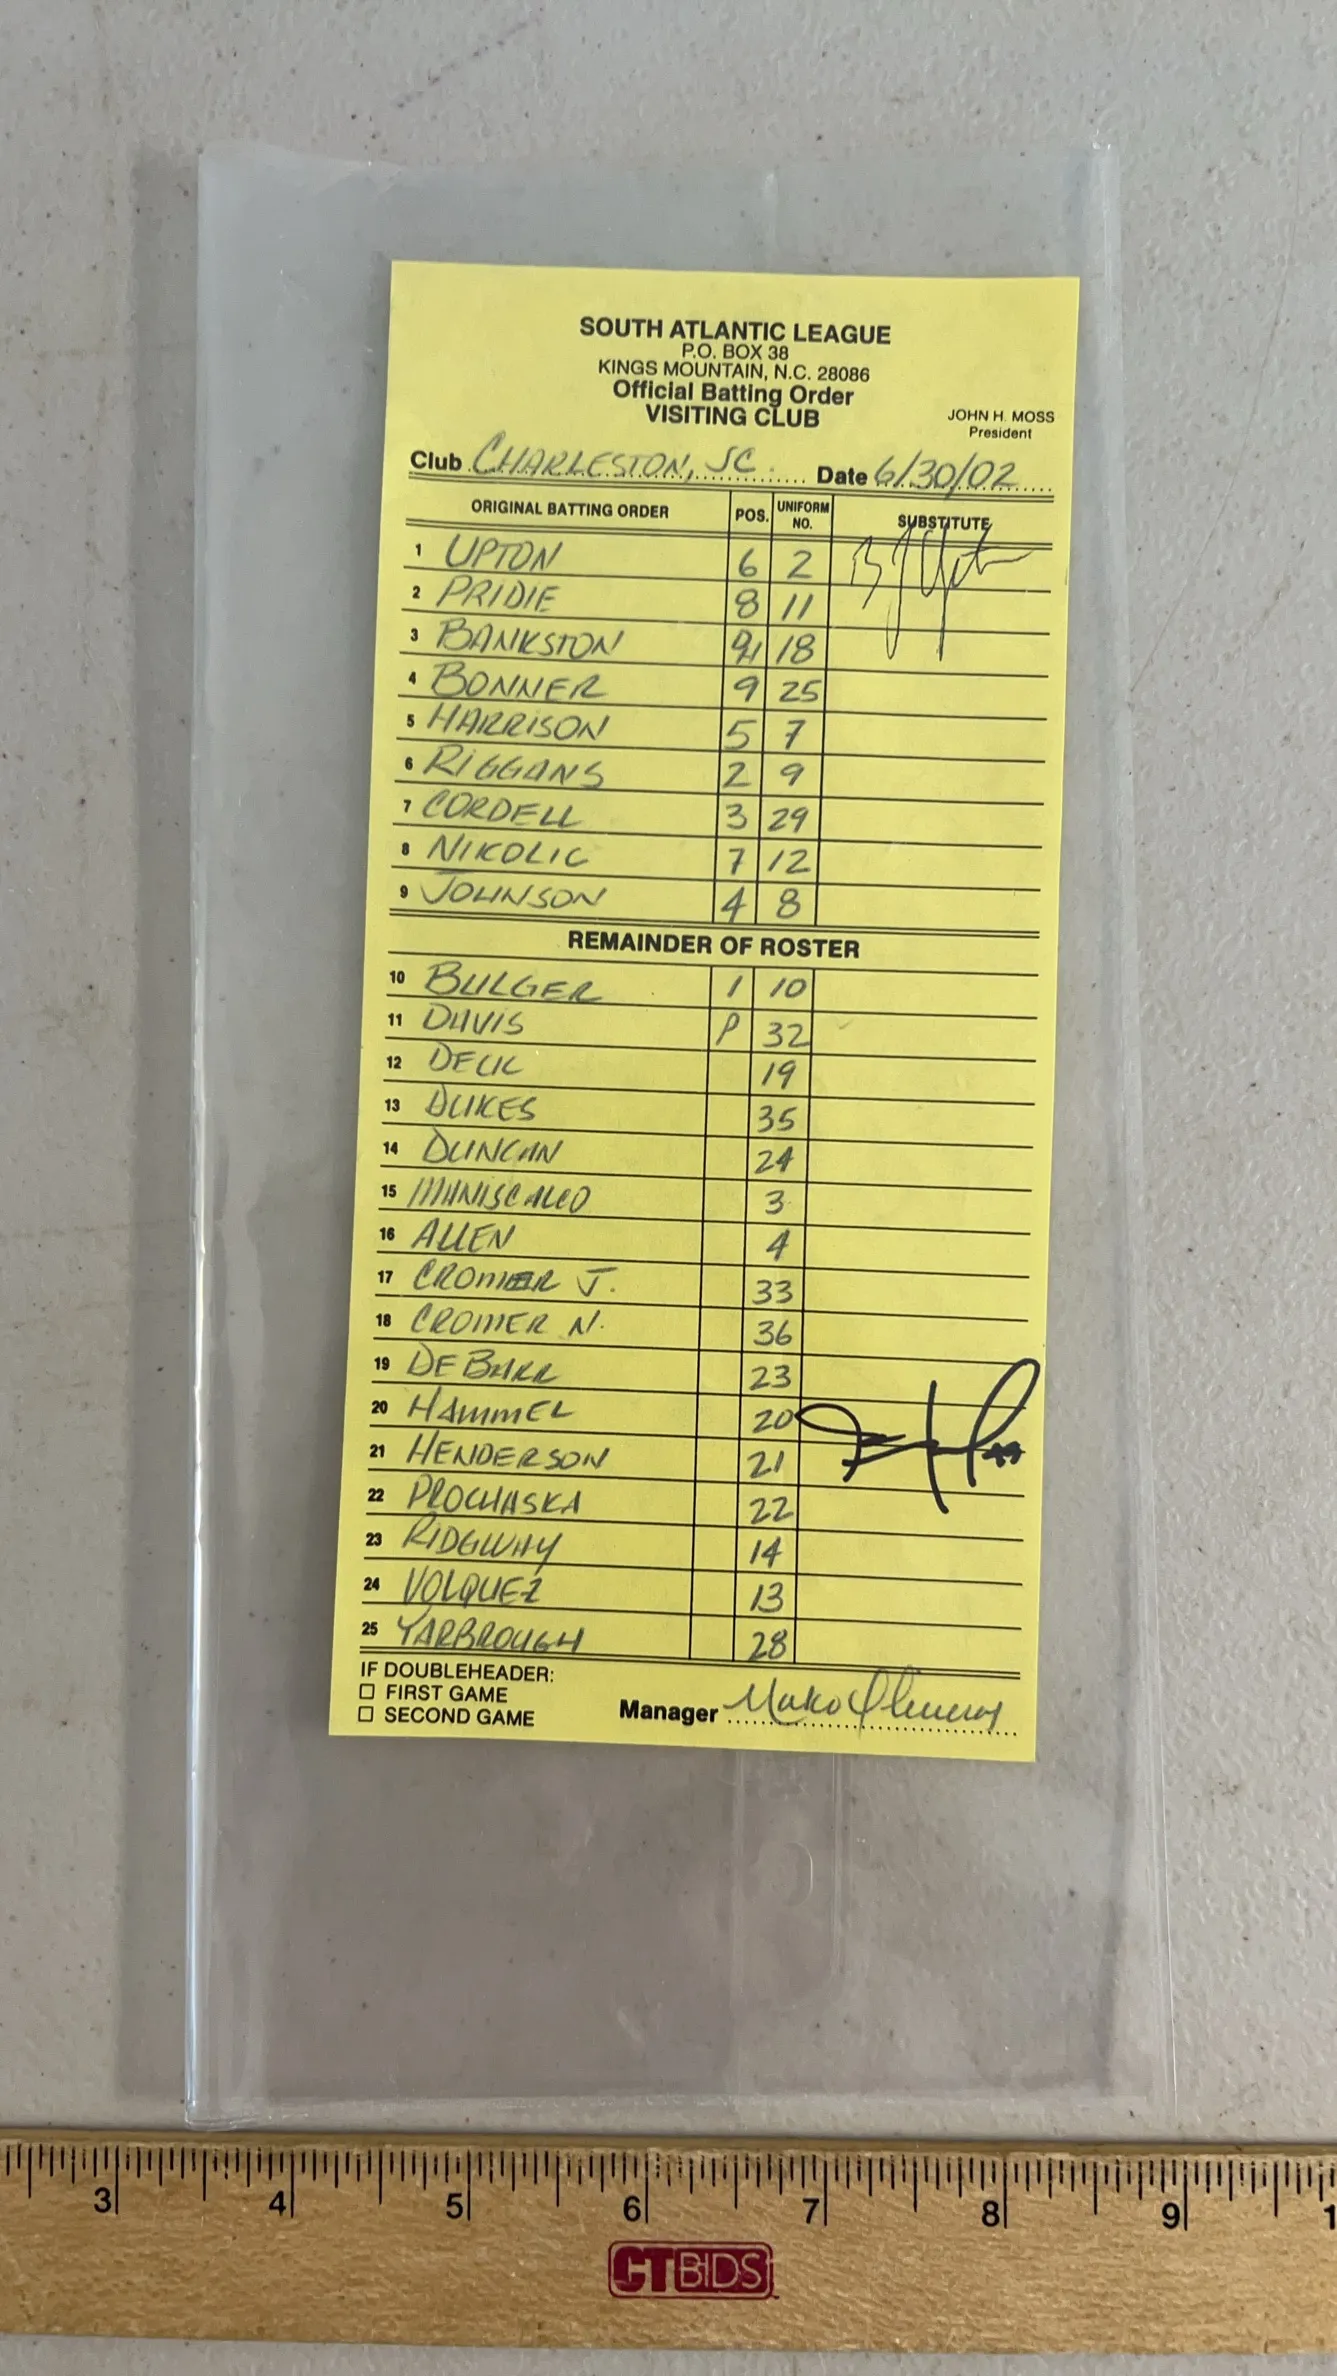 SOUTH ATLANTIC LEAGUE
P.O. BOX 38
KINGS MOUNTAIN, N.C. 28086
Official Batting Order
VISITING CLUB
JOHN H. MOSS
President
Club CHARLESTON, SC Date 6/30/02
ORIGINAL BATTING ORDER POS. UNIFORM NO. SUBSTITUTE
1 UPTON 6 2
2 PRIDIE 8 11
3 BANKSTON 18
4 BONNER 9 25
5 HARRISON 5 7
6 RIGGANS 2 9
7 CORDELL 3 29
8 NIKOLIC 7 12
9 JOHNSON 4 8
REMAINDER OF ROSTER
10 BULGER 1 10
11 DAVIS P 32
12 19
13 DUKES 35
14 DUNCAN 24
15 MANISCALCO 3
16 ALLEN 4
17 CROMER J. 33
18 CROMER N. 36
19 DEBARR 23
20 HAMMEL 20
21 HENDERSON 21
22 PROCHASKA 22
23 RIDGWAY 14
24 VOLQUEZ 13
25 YARBROUGH 28
IF DOUBLEHEADER:
FIRST GAME
SECOND GAME
Manager Mako Oliveras
3 4 5 6 7 8 9 1
CTBIDS